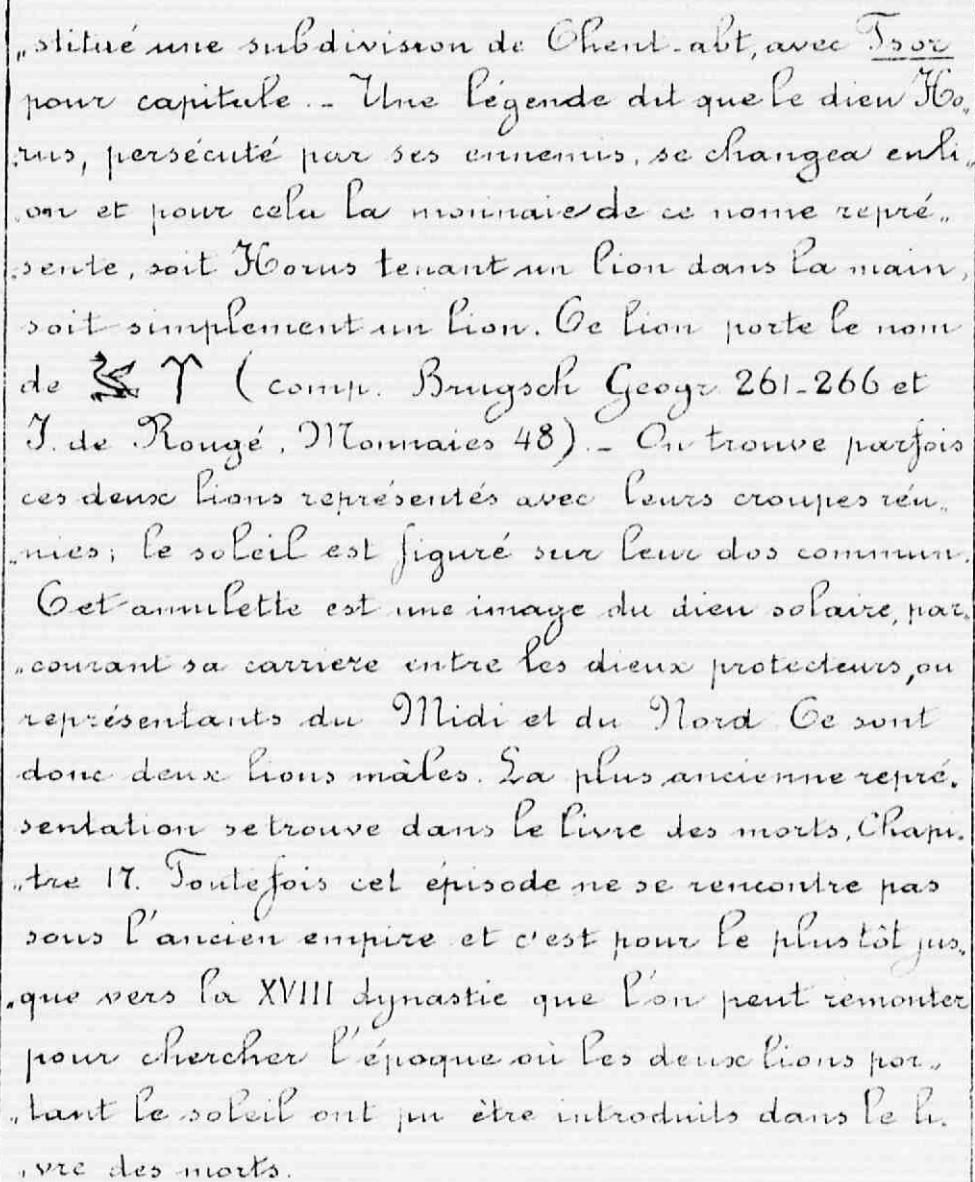 „stitué une subdivision de Chent-abt, avec Tsor
pour capitule. - Une légende dit que le dieu Ho„
„rus, persécuté par ses ennemis, se changea en li„
„on et pour cela la monnaie de ce nome repré„
„sente, soit Horus tenant un lion dans la main,
soit simplement un lion. Ce lion porte le nom
de (comp. Brugsch Geogr. 261-266 et
J. de Rougé, Monnaies 48). - On trouve parfois
ces deux lions représentés avec leurs croupes réu„
„nies; le soleil est figuré sur leur dos commun.
Cet amulette est une image du dieu solaire, par„
„courant sa carriere entre les dieux protecteurs, ou
représentants du Midi et du Nord Ce sont
donc deux lions mâles. La plus ancienne repré„
sentation se trouve dans le livre des morts, Chapi„
„tre 17. Toutefois cet épisode ne se rencontre pas
sous l'ancien empire et c'est pour le plus tôt jus„
„que vers la XVIII dynastie que l'on peut remonter
pour chercher l'époque où les deux lions por„
„tant le soleil ont pu être introduits dans le li„
„vre des morts.